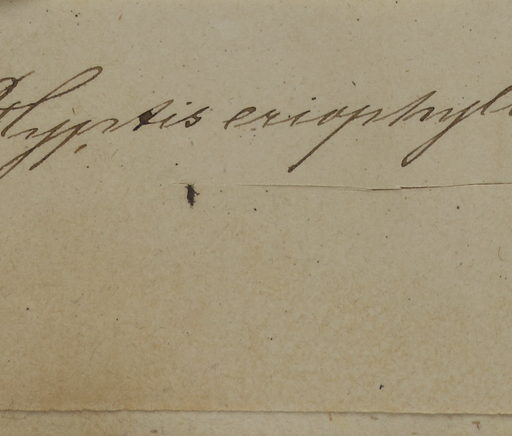 Hyptis eriophyl